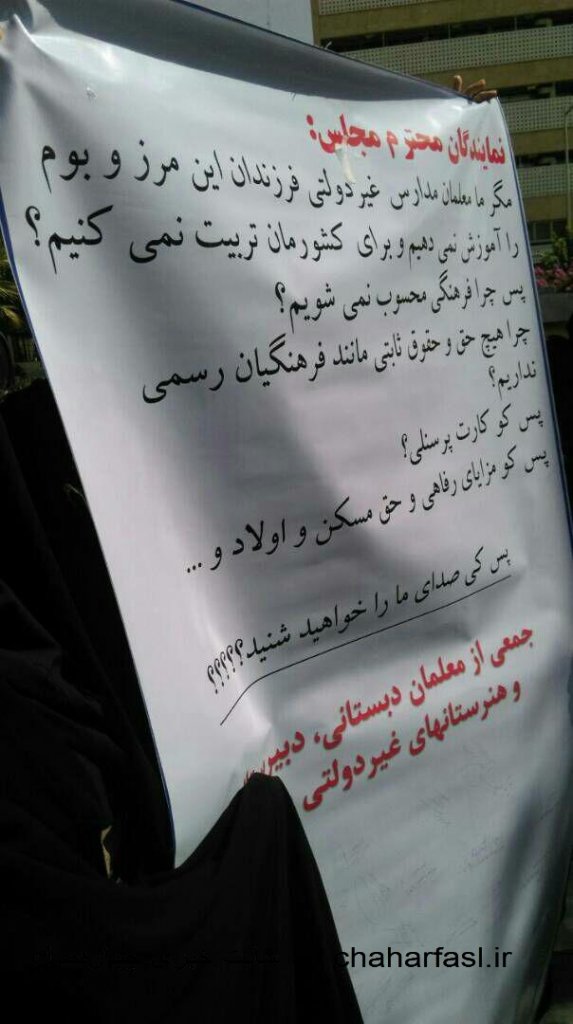 نمایندگان محترم مجلس:
مگر ما معلمان مدارس غیردولتی فرزندان این مرز و بوم
را آموزش نمی دهیم و برای کشورمان تربیت نمی کنیم؟
پس چرا فرهنگی محسوب نمی شویم؟
چرا هیچ حق و حقوق ثابتی مانند فرهنگیان رسمی
نداریم؟
پس کو کارت پرسنلی؟
پس کو مزایای رفاهی و حق مسکن و اولاد و ...
پس کی صدای ما را خواهید شنید؟؟؟؟؟
جمعی از معلمان دبستانی، دبیر
و هنرستانهای غیردولتی
chaharfasl.ir